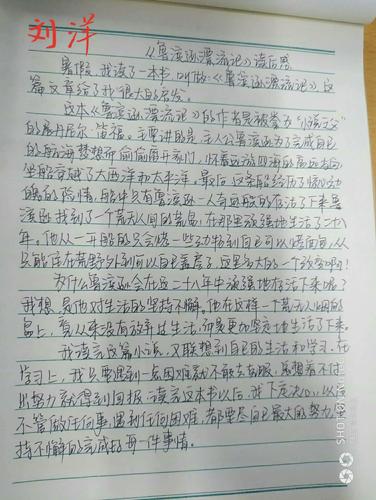 刘洋
《鲁滨逊漂流记》读后感
暑假,我读了一本书,叫做《鲁滨逊漂流记》,这
篇文章给了我很大的启发。
这本《鲁滨逊漂流记》的作者是被拳为"小说之父"
的丹尼尔·笛福。主要讲的是:主人公鲁滨逊为了完成自己
的航海梦想而偷偷离开家门,怀着远游四海的高远志向,
坐船穿越了大西洋和太平洋。最后,这条船经历了惊心动
魄的险情,船中只有鲁滨逊一人奇迹般的存活了下来。鲁
滨逊找到了一个荒无人烟的荒岛,在那里顽强地生活了二十八
年。他从一开始的只会烧一些动物到自己可以烤面包,从
只能住在荒野外到可以自己盖房子,这是多大的一个改变啊!
为什么鲁滨逊会在这二十八年中顽强地存活下来呢?
我想,是他对生活的坚持不懈。他在这样一个荒无人烟的
岛上,看从来没有放弃过生活,而是更加坚定地生活了下来。
我读完这篇小说,又联想到自己的生活和学习。在
学习上,我只要遇到一点困难就不敢去克服,总想着不付
出努力就得到回报。读完这本书以后,我下定决心,以后
不管做任何事,遇到任何困难,都要尽自己最大的努力,坚
持不懈的完成好每一件事情。
SHOT ON